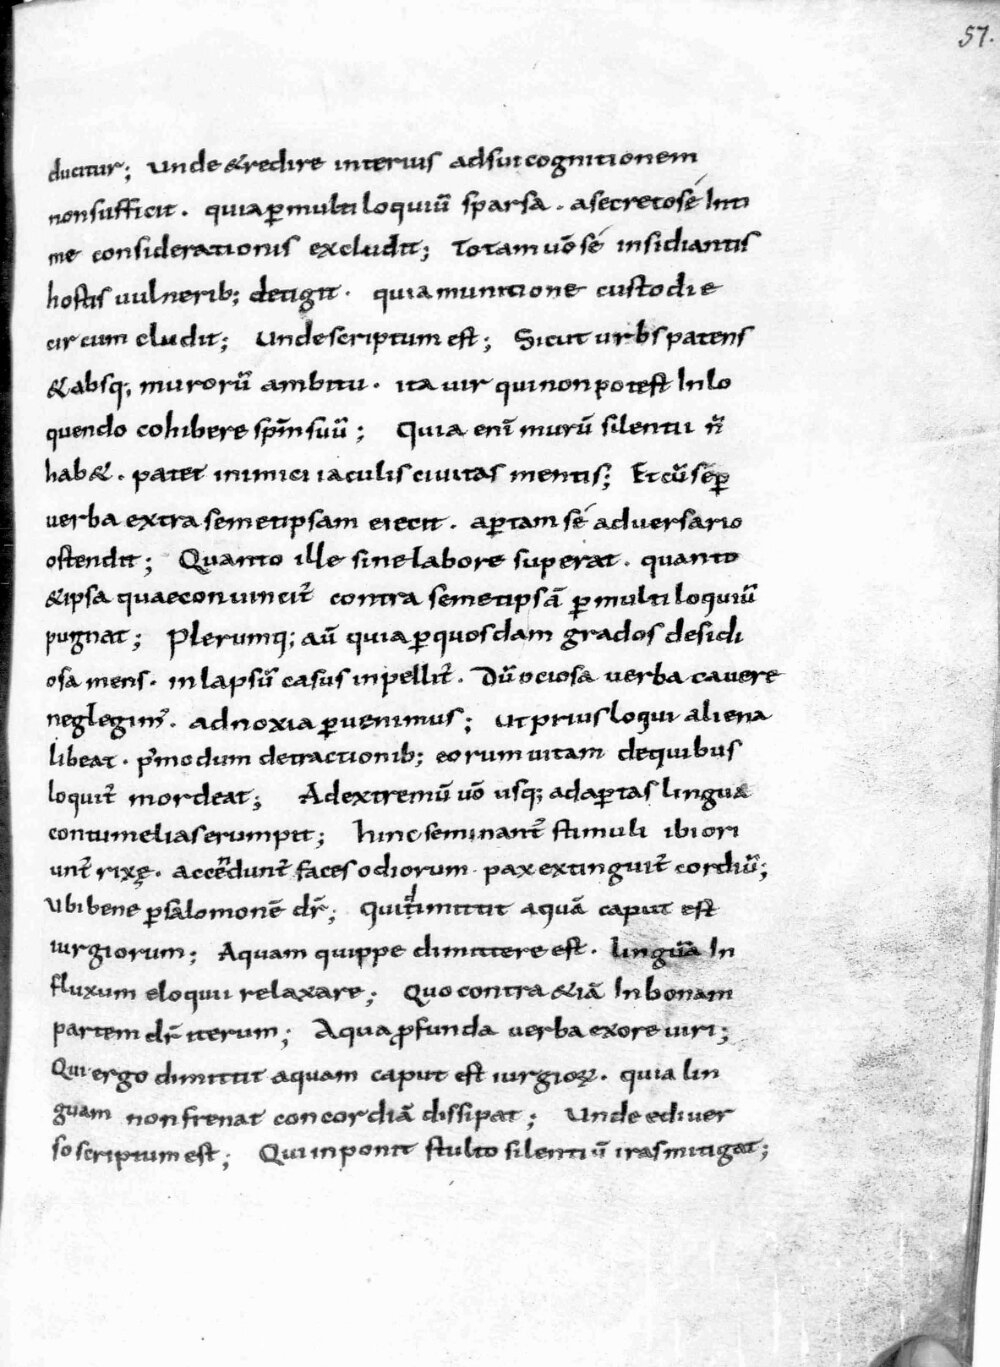 57.
ducitur; unde &redire interius adsui cognitionem
nonsufficit. quia ꝑ multiloquiū sparsa. asecreto sé Inti
me considerationis excludit; Totam uō sé insidiantis
hostis uulnerib; detigit. quia munitione custodie
circum cludit; Unde scriptum est; Sicut urbs patens
&absq; murorū ambitu. ita uir qui non potest Inlo
quendo cohibere spm̄ suū; Quia eni murū silentii n̄
hab&. patet inimici iaculis ciuitas mentis; Et cū sēꝑ
uerba extra semetipsam eiecit. aꝑtam sé aduersario
ostendit; Quanto ille sine labore superat. quanto
&ipsa quae conuincit̄ contra semetipsā ꝑ multiloquiū
pugnat; Plerumq; aū quia ꝑ quosdam grados desidi
osa mens. in lapsū casus inpellit̄. Dū ociosa uerba cavere
neglegim̄. ad noxia ꝑuenimus; ut prius loqui aliena
libeat. p̄modum detractionib; eorum uitam dequibus
loquit̄ mordeat; Ad extremū uō usq; ad aꝑtas lingua
contumelias erumpit; hinc seminant̄ stimuli ibi ori
unt̄ rixę. accēdunt̄ faces odiorum. pax extinguit̄ cordiū;
Ubi bene ꝑ salomonē dr̄; Qui dimittit aquā caput est
iurgiorum; Aquam quippe dimittere est. linguā In
fluxum eloquii relaxare; Quo contra &iā In bonam
partem dr̄ iterum; Aqua ꝓfunda uerba ex ore uiri;
Qui ergo dimittit aquam caput est iurgioꝝ. quia lin
guam non frenat concordiā dissipat; Unde ediuer
so scriptum est; Qui inponit stulto silentiū iras mitigat;